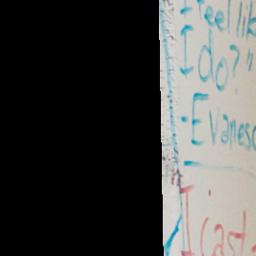 I feel lik
I do?"
-Evanesc
I cast